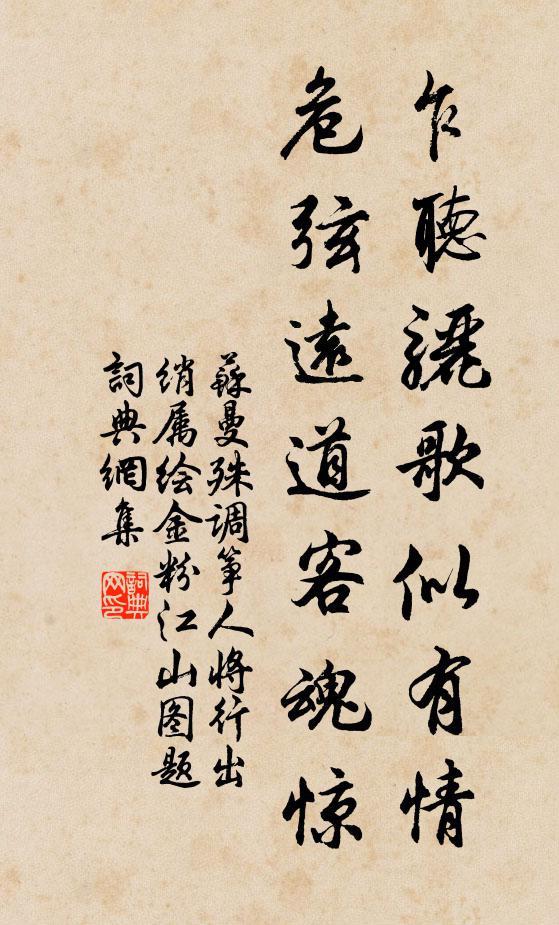 乍聽驪歌似有情
危弦遠道客魂惊
蘇曼殊调箏人将行出
绡属绘金粉江山图题
詞典網集
詞典网印